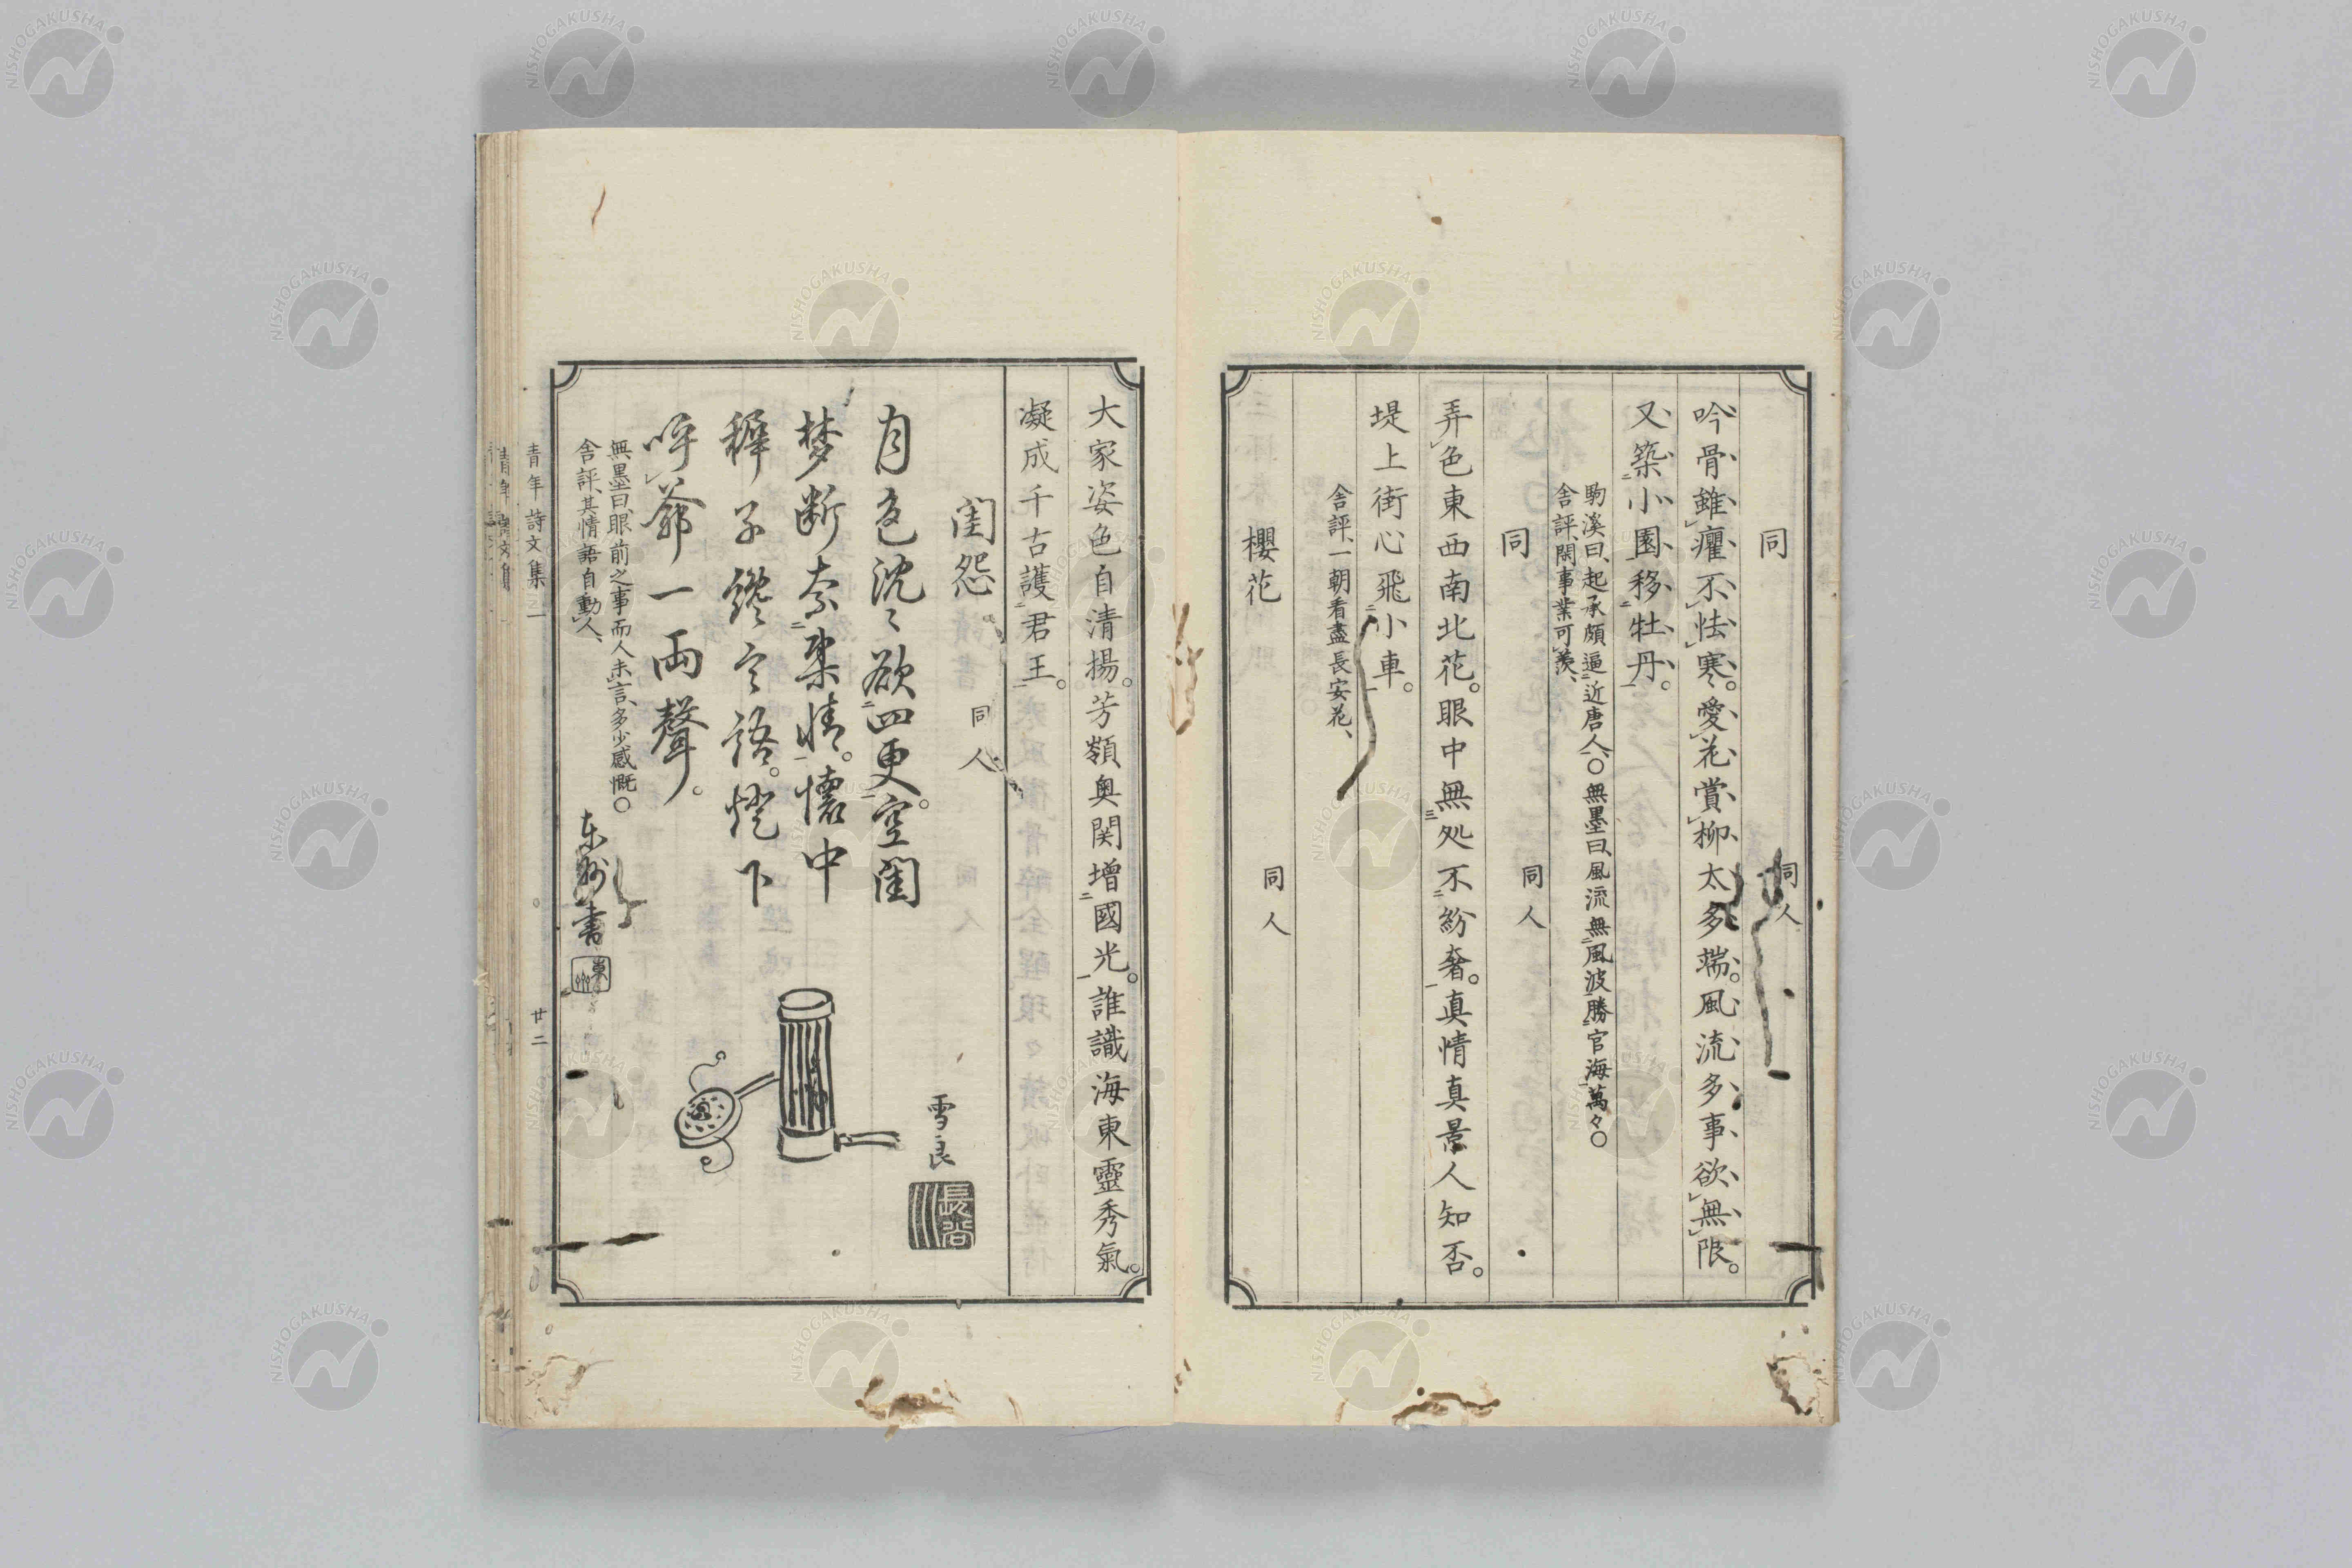 同　同人
吟骨雖癯不怯寒。愛花賞柳太多端。風流多事欲無限。
又築小園移牡丹。
駒溪曰、起承頗逼近唐人、○無墨曰、風流無風波勝官海萬々○
舎評、閑事業可羨、
同　同人
弄色東西南北花。眼中無処不紛奢。真情真景人知否。
堤上街心飛小車。
舎評、一朝看盡長安花、
櫻花　同人
大家姿色自清揚。芳額奥関増國光。誰識海東靈秀氣。
凝成千古護君王。
閨怨　同人
月色沈々欲四更。空閨
梦断奈集情。懐中
稺子纔言語。燈下
呼爺一両聲。
無墨曰、眼前之事而人未言、多少感慨○
舎評、其情語自動人、
東州書
東州
雪良
青年詩文集二
廿二
NISHOGAKUSHA